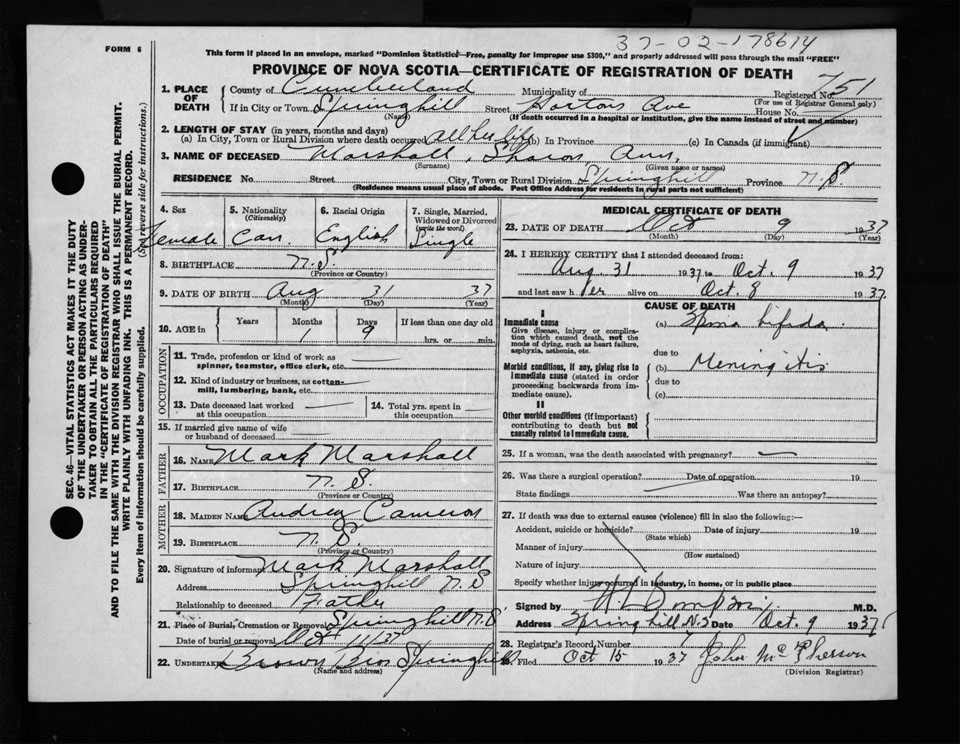 37-02-178614
FORM 6
This form if placed in an envelope, marked "Dominion Statistics—Free, penalty for improper use $300," and properly addressed will pass through the mail "FREE"
PROVINCE OF NOVA SCOTIA—CERTIFICATE OF REGISTRATION OF DEATH
SEC. 46—VITAL STATISTICS ACT MAKES IT THE DUTY
OF THE UNDERTAKER OR PERSON ACTING AS UNDER-
TAKER TO OBTAIN ALL THE PARTICULARS REQUIRED
IN THE "CERTIFICATE OF REGISTRATION OF DEATH"
AND TO FILE THE SAME WITH THE DIVISION REGISTRAR WHO SHALL ISSUE THE BURIAL PERMIT.
WRITE PLAINLY WITH UNFADING INK. THIS IS A PERMANENT RECORD.
Every item of information should be carefully supplied. (See reverse side for instructions.)
1. PLACE OF DEATH
County of Cumberland Municipality of Registered No. 751
(For use of Registrar General only)
If in City or Town Springhill Street Hortons Ave House No.
(Name) (If death occurred in a hospital or institution, give the name instead of street and number)
2. LENGTH OF STAY (in years, months and days)
(a) In City, Town or Rural Division where death occurred all her life (b) In Province (c) In Canada (if immigrant)
3. NAME OF DECEASED Marshall, Sharon Ann,
(Surname) (Given name or names)
RESIDENCE No. Street City, Town or Rural Division Springhill Province N.S.
(Residence means usual place of abode. Post Office Address for residents in rural parts not sufficient)
4. Sex
female
5. Nationality
(Citizenship)
Can.
6. Racial Origin
English
7. Single, Married,
Widowed or Divorced
(write the word)
Single
8. BIRTHPLACE N.S.
(Province or Country)
9. DATE OF BIRTH Aug 31 37
(Month) (Day) (Year)
10. AGE in Years Months Days If less than one day old
1 9 hrs. or min.
OCCUPATION
11. Trade, profession or kind of work as
spinner, teamster, office clerk, etc.
12. Kind of industry or business, as cotton-
mill, lumbering, bank, etc.
13. Date deceased last worked
at this occupation
14. Total yrs. spent in
this occupation
15. If married give name of wife
or husband of deceased
FATHER
16. NAME Mark Marshall
17. BIRTHPLACE N.S.
(Province or Country)
MOTHER
18. MAIDEN NAME Audrey Cameron
19. BIRTHPLACE N.S.
(Province or Country)
20. Signature of informant Mark Marshall
Address Springhill N.S
Relationship to deceased Father
21. Place of Burial, Cremation or Removal Springhill N.S
Date of burial or removal Oct 11/37
22. UNDERTAKER Brown Bros Springhill
(Name and address)
MEDICAL CERTIFICATE OF DEATH
23. DATE OF DEATH Oct 9 1937
(Month) (Day) (Year)
24. I HEREBY CERTIFY that I attended deceased from:
Aug 31 1937 to Oct. 9 1937
and last saw her alive on Oct. 8 1937.
CAUSE OF DEATH
I
Immediate cause
Give disease, injury or complica-
tion which caused death, not the
mode of dying, such as heart failure,
asphyxia, asthenia, etc.
(a) Spina bifida.
due to
Morbid conditions, if any, giving rise to
immediate cause (stated in order
proceeding backwards from im-
mediate cause).
(b) Meningitis
due to
(c)
II
Other morbid conditions (if important)
contributing to death but not
causally related to immediate cause.
25. If a woman, was the death associated with pregnancy?
26. Was there a surgical operation? Date of operation 19
State findings Was there an autopsy?
27. If death was due to external causes (violence) fill in also the following:—
Accident, suicide or homicide? Date of injury 19
(State which)
Manner of injury
(How sustained)
Nature of injury
Specify whether injury occurred in industry, in home, or in public place
Signed by M.D.
Address Springhill N.S Date Oct. 9 1937
28. Registrar's Record Number
29. Filed Oct 15 1937 John McPherson
(Division Registrar)